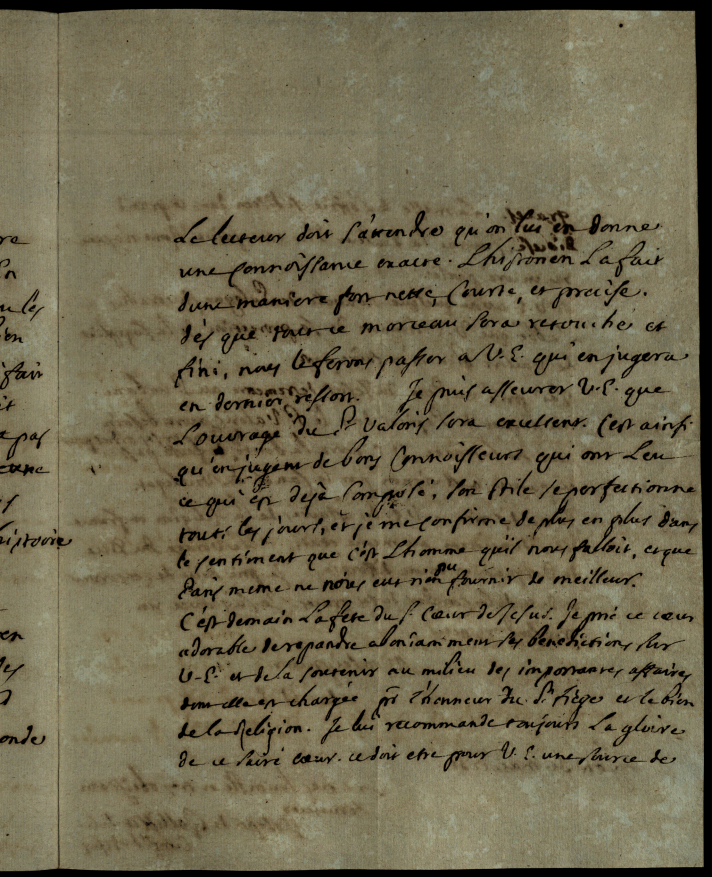 Le lecteur doit s'attendre qu'on lui en donne
une connoissance exacte. L'historien La fait
dune maniere fort nette, Courte, et precise.
dés que tout ce morceau sera retouché et
fini, nous le ferons passer a V. E. qui en jugera
en dernier ressort. Je puis asseurer V. E. que
L'ouvrage du Sr Valoris sera excellent. C'est ainsi
qu'en jugent de bons Connoisseurs qui ont Leu
ce qui est dejà Composé, son stile se perfectionne
touts les jours, et je me confirme de plus en plus dans
le sentiment que c'est L'homme qu'il nous falloit, et que
Paris meme ne nous eut rien pu fournir de meilleur.
C'est demain La fete du S. Cœur de Jesus. Je prie ce cœur
adorable de repandre abondamment ses benedictions sur
V. E. et de la soutenir au milieu des importantes affaires
dont elle est chargée pr l'honneur du St Siege et le bien
de la Religion. Je lui recommande toujours La gloire
de ce sacré cœur. ce doit etre pour V. E. une source de
re
en
les
ien
fait
it
pas
histoire
en
des
onde